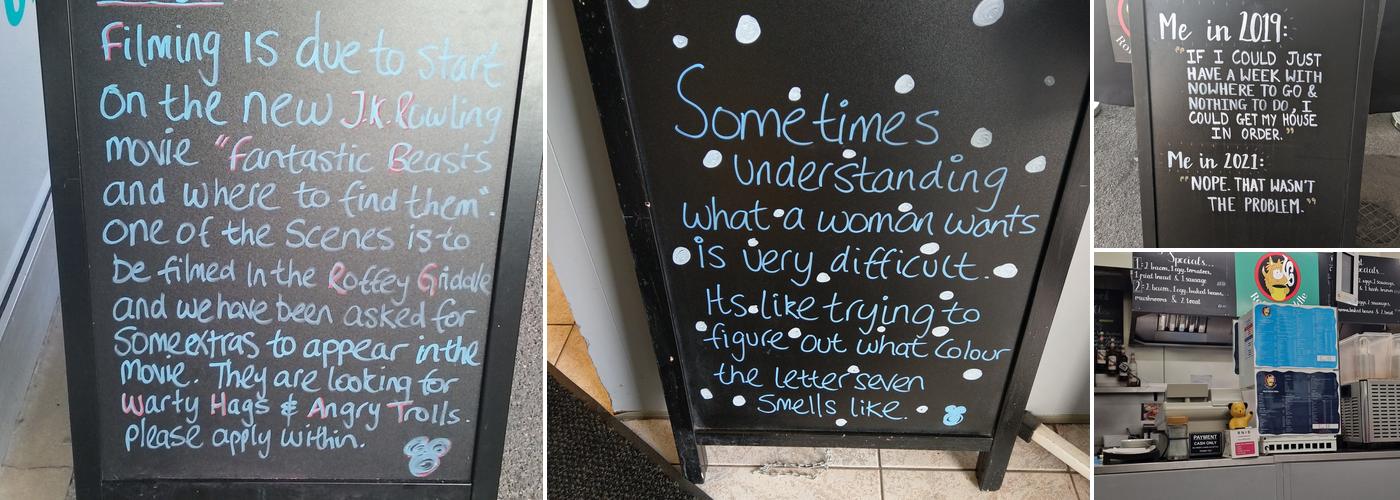 Filming is due to start
on the new J.K. Rowling
movie "Fantastic Beasts
and where to find them".
one of the scenes is to
be filmed in the Roffey Griddle
and we have been asked for
Some extras to appear in the
movie. They are looking for
Warty Hags & Angry Trolls.
please apply within.
Sometimes
understanding
what a woman wants
is very difficult.
Its like trying to
figure out what Colour
the letter seven
Smells like.
Me in 2019:
"IF I COULD JUST
HAVE A WEEK WITH
NOWHERE TO GO &
NOTHING TO DO, I
COULD GET MY HOUSE
IN ORDER."
Me in 2021:
"NOPE. THAT WASN'T
THE PROBLEM."
Specials...
1: 2 bacon, 1 egg, tomatoes,
1 fried bread & 1 sausage
2: 2 bacon, 1 egg, baked beans,
mushrooms & 2 toast
PAYMENT
CASH ONLY